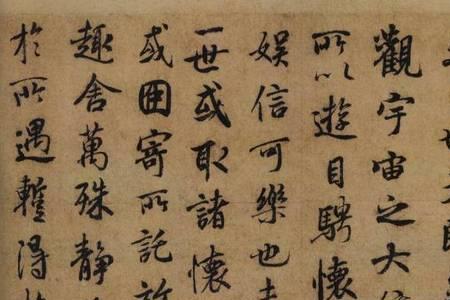 觀宇宙之大
所以遊目騁懷
娛信可樂也夫
一世或取諸懷
或因寄所託放
趣舍萬殊靜
於所遇蹔得